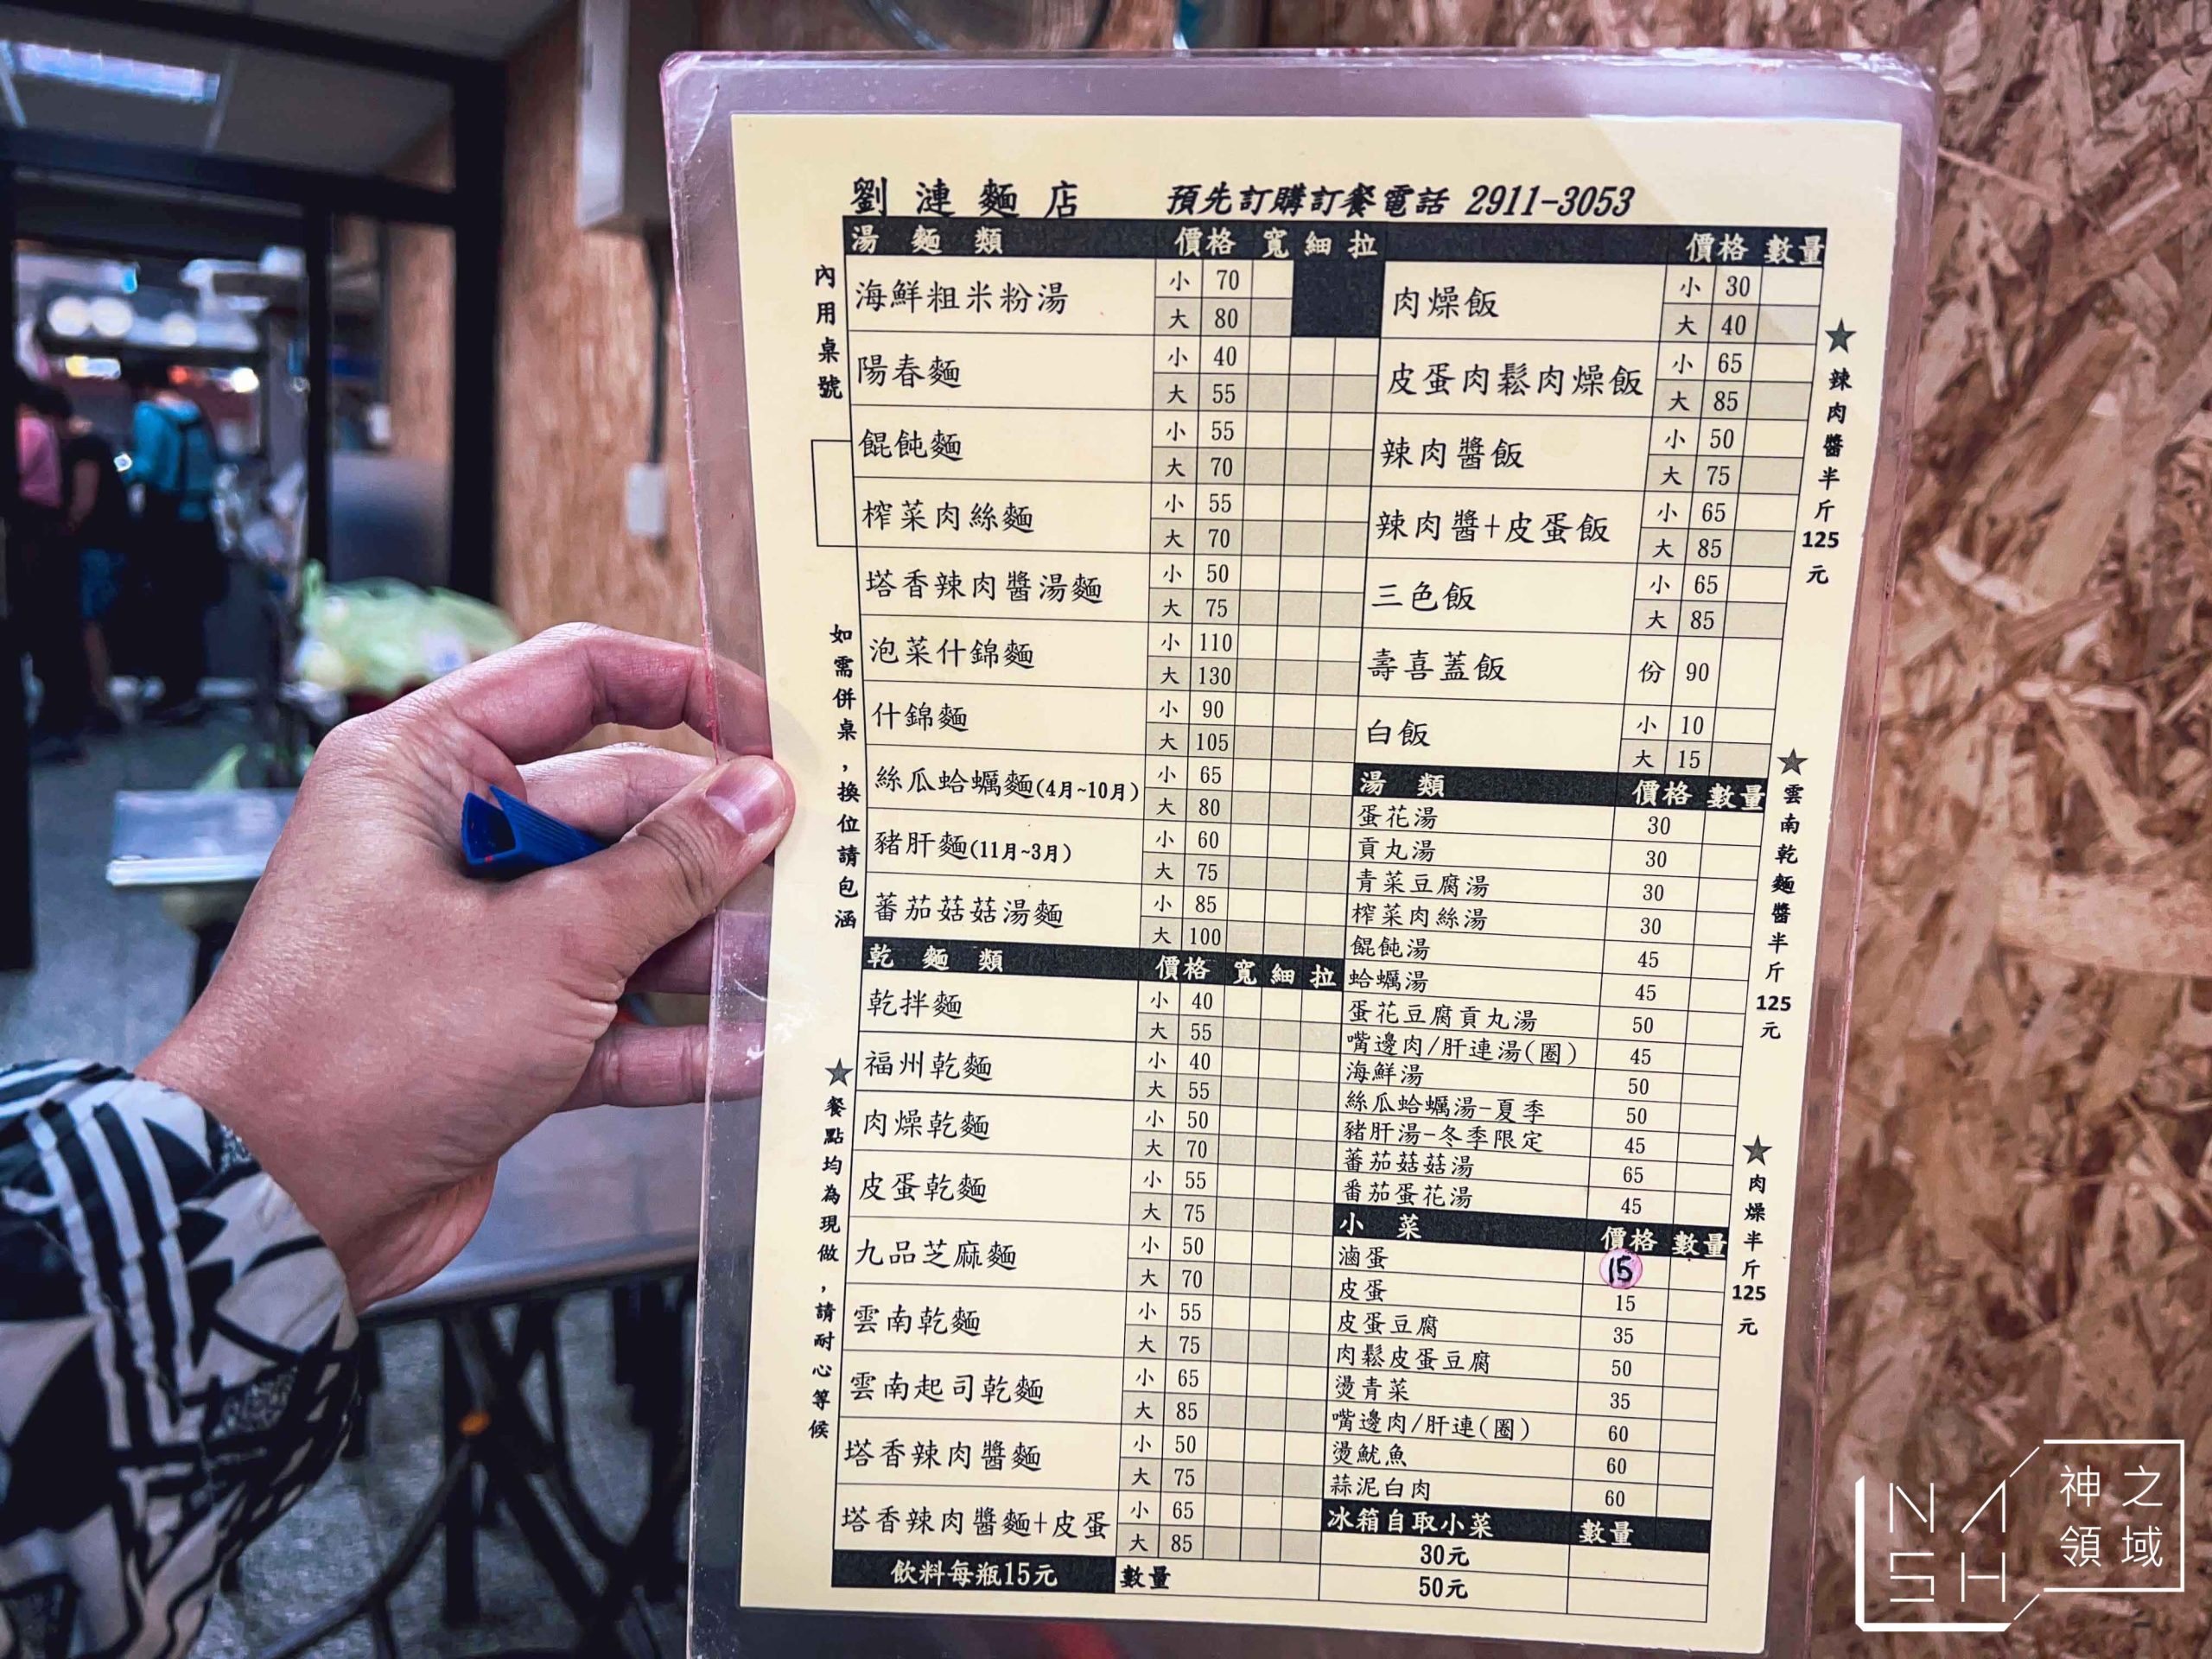 劉漣麵店 預先訂購訂餐電話 2911-3053
湯麵類 價格 寬 細 拉
海鮮粗米粉湯 小 70 大 80
陽春麵 小 40 大 55
餛飩麵 小 55 大 70
榨菜肉絲麵 小 55 大 70
塔香辣肉醬湯麵 小 50 大 75
泡菜什錦麵 小 110 大 130
什錦麵 小 90 大 105
絲瓜蛤蠣麵(4月~10月) 小 65 大 80
豬肝麵(11月~3月) 小 60 大 75
蕃茄菇菇湯麵 小 85 大 100
乾麵類 價格 寬 細 拉
乾拌麵 小 40 大 55
福州乾麵 小 40 大 55
肉燥乾麵 小 50 大 70
皮蛋乾麵 小 55 大 75
九品芝麻麵 小 50 大 70
雲南乾麵 小 55 大 75
雲南起司乾麵 小 65 大 85
塔香辣肉醬麵 小 50 大 75
塔香辣肉醬麵+皮蛋 小 65 大 85
飲料每瓶15元 數量
價格 數量
肉燥飯 小 30 大 40
皮蛋肉鬆肉燥飯 小 65 大 85
辣肉醬飯 小 50 大 75
辣肉醬+皮蛋飯 小 65 大 85
三色飯 小 65 大 85
壽喜蓋飯 份 90
白飯 小 10 大 15
湯類 價格 數量
蛋花湯 30
貢丸湯 30
青菜豆腐湯 30
榨菜肉絲湯 30
餛飩湯 45
蛤蠣湯 45
蛋花豆腐貢丸湯 50
嘴邊肉/肝連湯(圈) 45
海鮮湯 50
絲瓜蛤蠣湯-夏季 50
豬肝湯-冬季限定 45
蕃茄菇菇湯 65
番茄蛋花湯 45
小菜 價格 數量
滷蛋 15
皮蛋 15
皮蛋豆腐 35
肉鬆皮蛋豆腐 50
燙青菜 35
嘴邊肉/肝連(圈) 60
燙魷魚 60
蒜泥白肉 60
冰箱自取小菜 數量
30元
50元
內用桌號
如需併桌，換位請包涵
★餐點均為現做，請耐心等候
★辣肉醬半斤125元
★雲南乾麵醬半斤125元
★肉燥半斤125元
NASH
神之領域